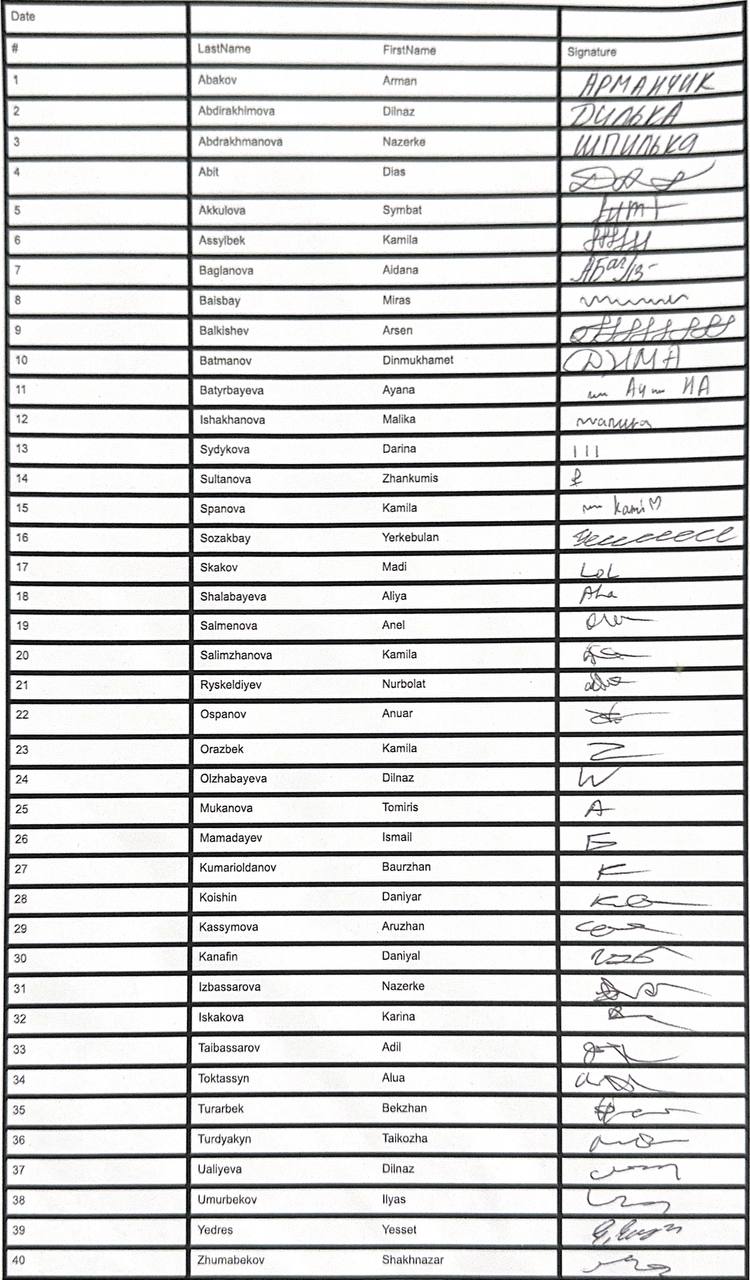 Date
# LastName FirstName Signature
1 Abakov Arman АРМАНЧИК
2 Abdirakhimova Dilnaz ДИЛЬКА
3 Abdrakhmanova Nazerke ШПИЛЬКА
4 Abit Dias
5 Akkulova Symbat
6 Assylbek Kamila
7 Baglanova Aidana
8 Baisbay Miras
9 Balkishev Arsen
10 Batmanov Dinmukhamet ДИМА
11 Batyrbayeva Ayana
12 Ishakhanova Malika
13 Sydykova Darina
14 Sultanova Zhankumis
15 Spanova Kamila Kami♡
16 Sozakbay Yerkebulan
17 Skakov Madi LOL
18 Shalabayeva Aliya
19 Salmenova Anel
20 Salimzhanova Kamila
21 Ryskeldiyev Nurbolat
22 Ospanov Anuar
23 Orazbek Kamila
24 Olzhabayeva Dilnaz
25 Mukanova Tomiris A
26 Mamadayev Ismail
27 Kumarioldanov Baurzhan K
28 Koishin Daniyar
29 Kassymova Aruzhan
30 Kanafin Daniyal
31 Izbassarova Nazerke
32 Iskakova Karina
33 Taibassarov Adil
34 Toktassyn Alua
35 Turarbek Bekzhan
36 Turdyakyn Taikozha
37 Ualiyeva Dilnaz
38 Umurbekov Ilyas
39 Yedres Yesset
40 Zhumabekov Shakhnazar